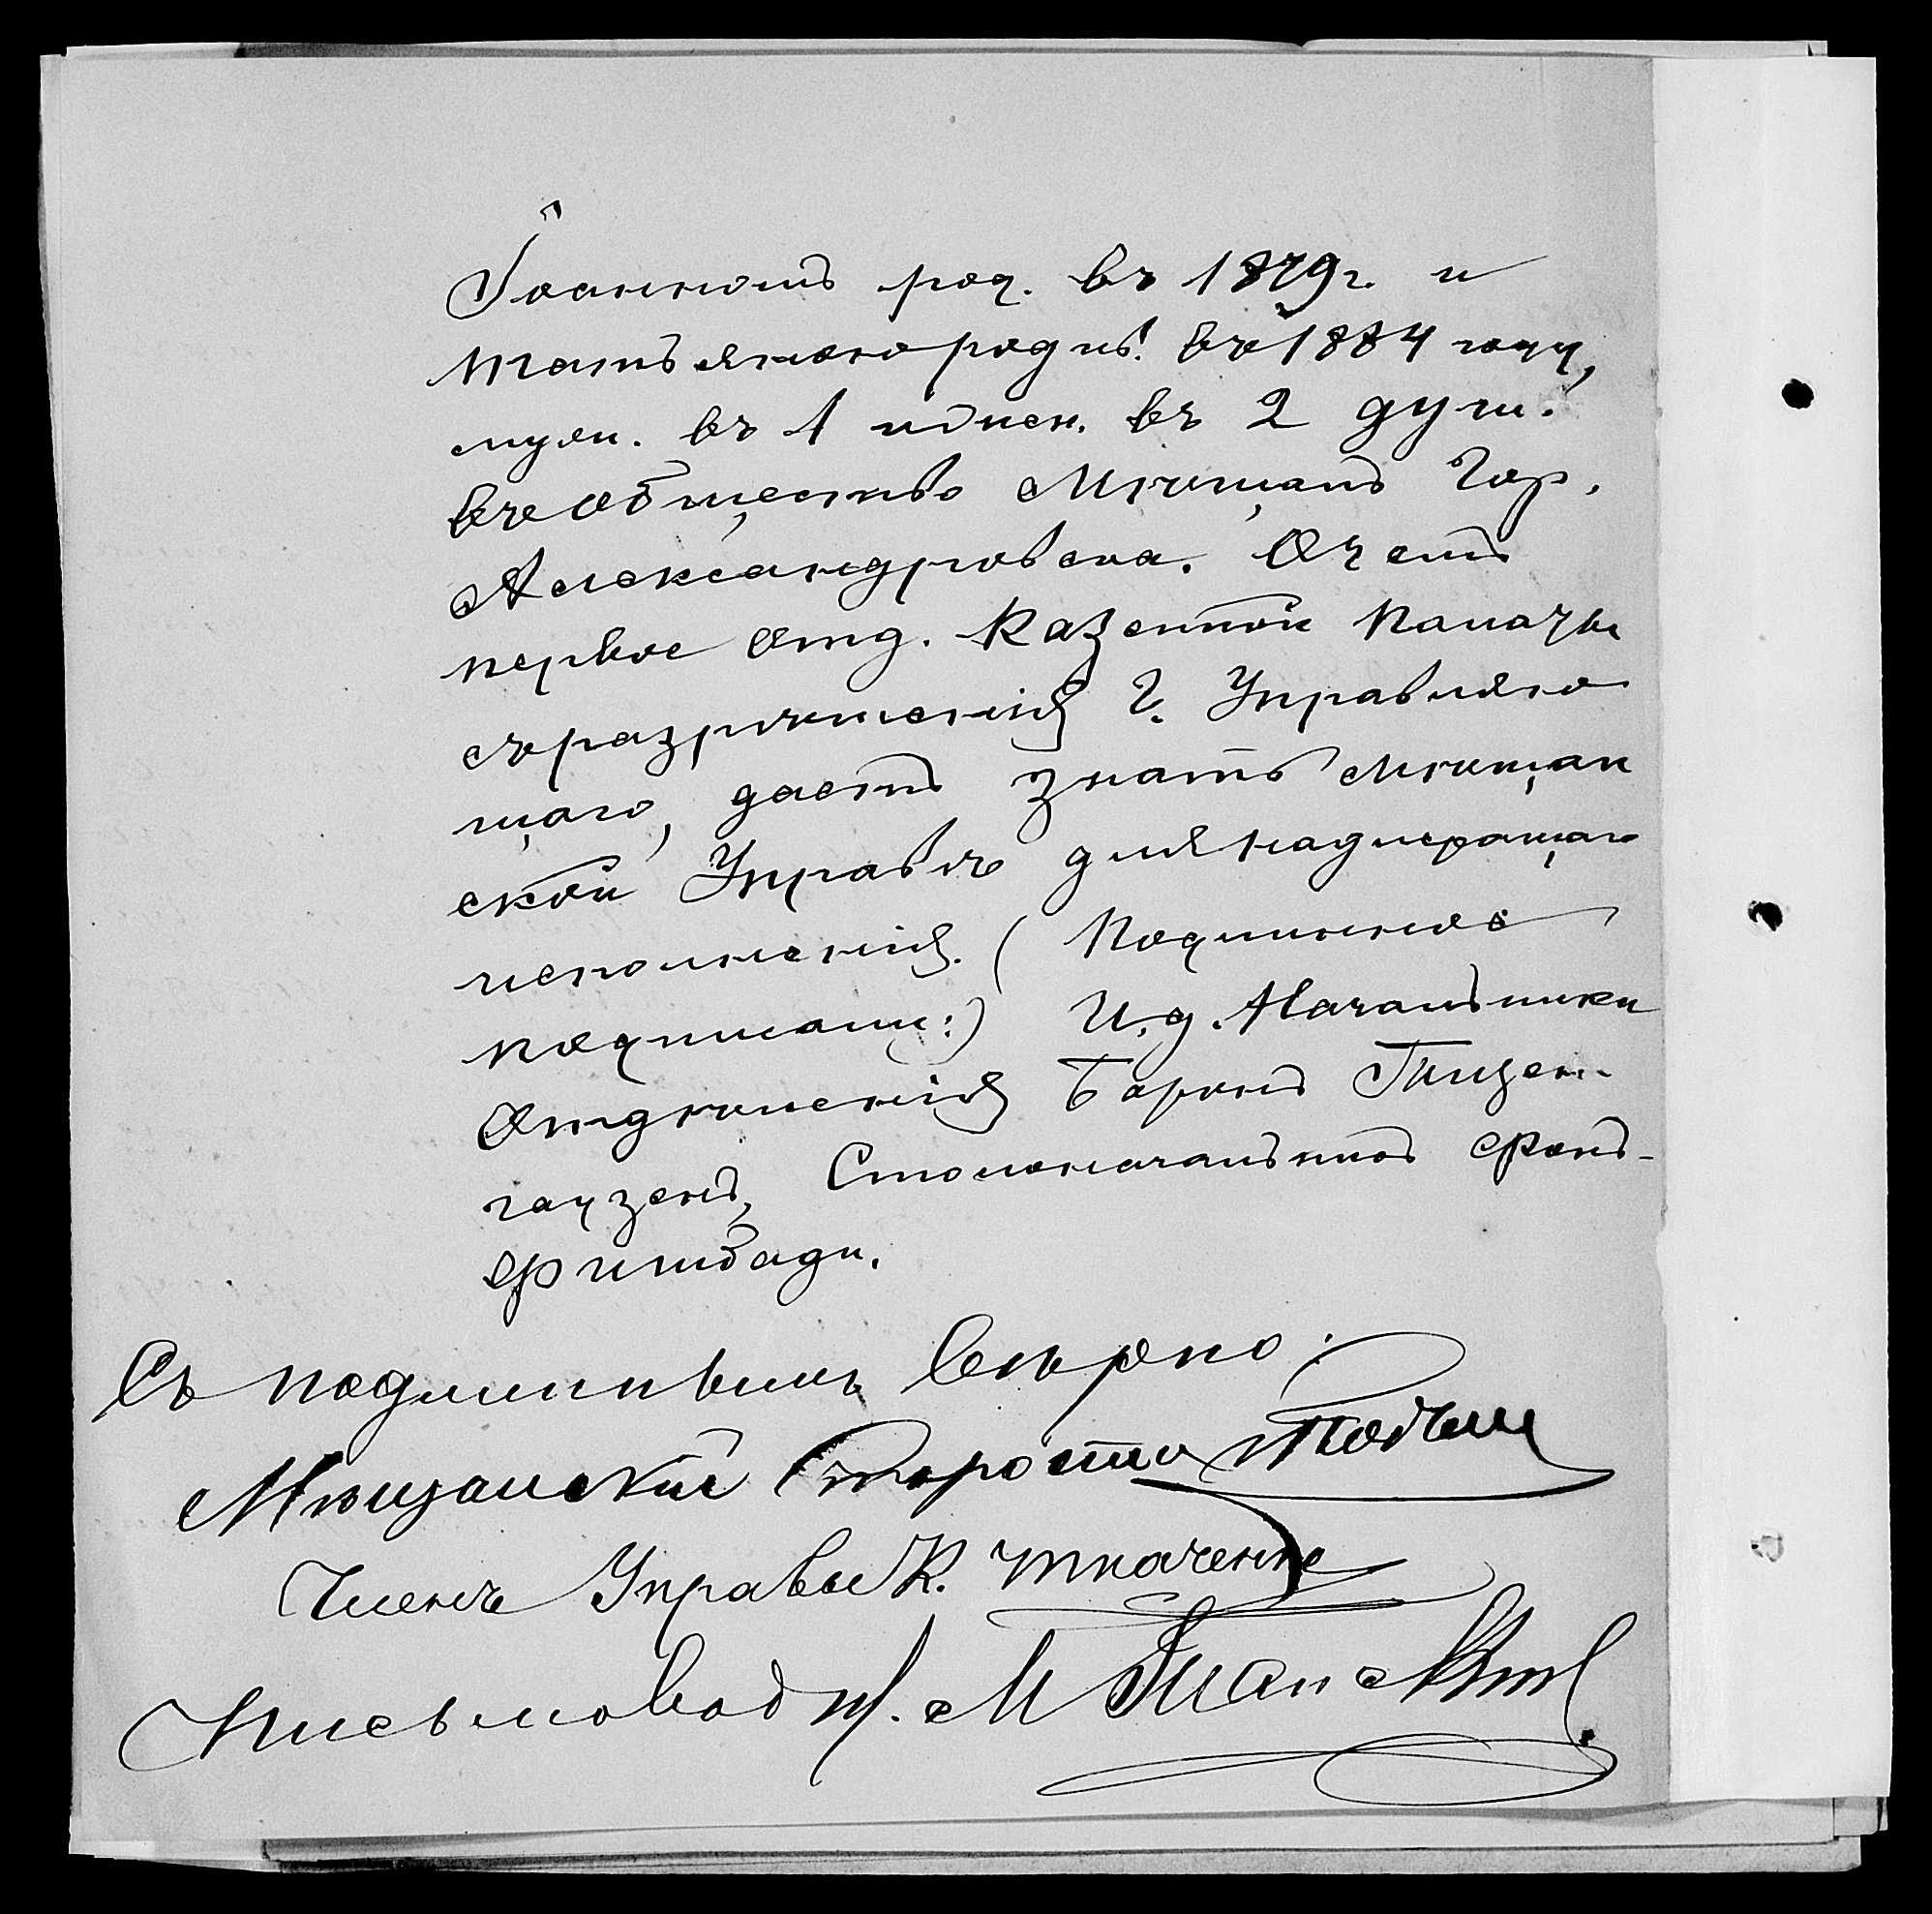 Іоанномъ род. въ 1879 г. и
Татьяною родив. въ 1884 году,
муж. въ 1 и женск. въ 2 душ.
въ общество Мѣщанъ Гор.
Александровска. О чемъ
первое Отд. Казенной Палаты
съ разрѣшенія Г. Управляю
щаго, даетъ знать Мѣщан
ской Управѣ для надлежащаго
исполненія. (Подлинное
подписали:) И. д. Начальника
Отдѣленія Баронъ Тизен-
гаузенъ, Столоначальникъ Фонъ-
Съ подлиннымъ вѣрно:
Мѣщанскій Староста
Членъ Управы К. Ткаченко
Письмоводит. М